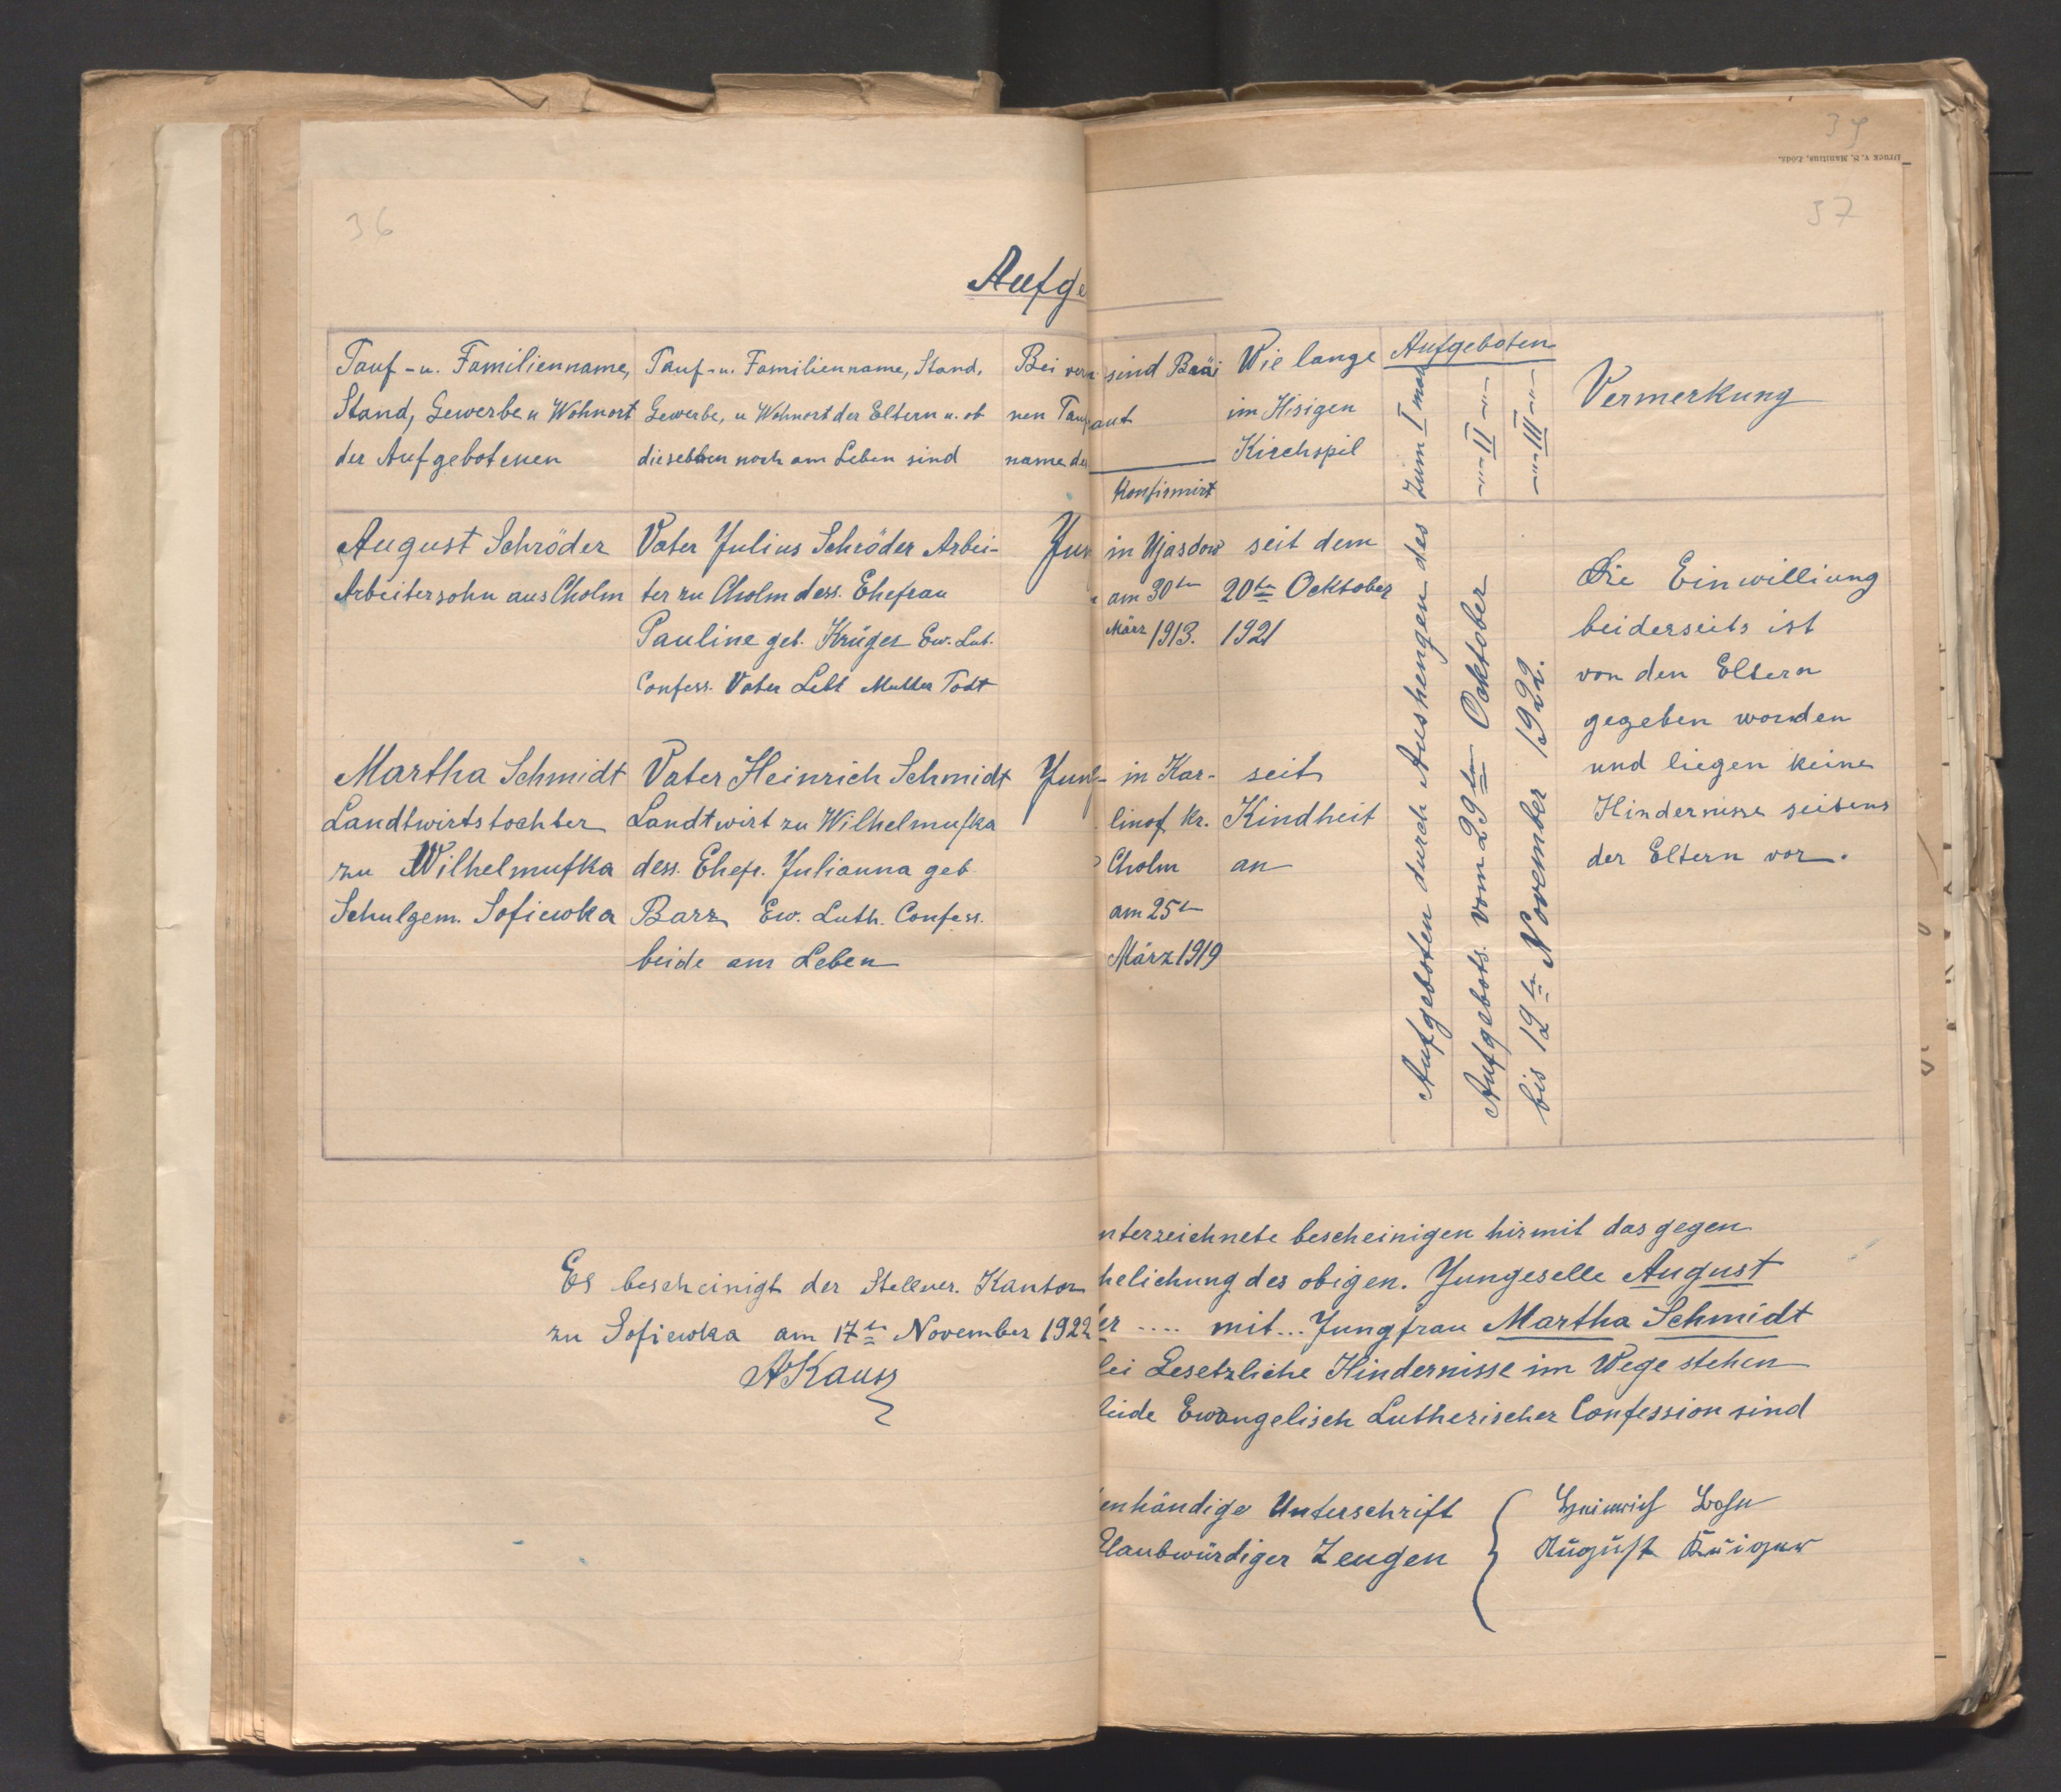 36
Aufge
Tauf-u. Familienname,
Stand, Gewerbe u Wohnort
der Aufgebotenen
Tauf-u. Familienname, Stand,
Gewerbe, u Wohnort der Eltern u. ob
dieselben noch am Leben sind
Bei
nen
name
August Schröder
Arbeitersohn aus Cholm
Vater Julius Schröder Arbei-
ter zu Cholm dess. Ehefrau
Pauline geb. Krüger Ew. Lut.
Confess. Vater Lebt Mutter Todt
Jun
Martha Schmidt
Landtwirtstochter
zu Wilhelmufka
Schulgem. Sofiewka
Vater Heinrich Schmidt
Landtwirt zu Wilhelmufka
dess. Ehefr. Julianna geb
Barz Ew. Luth. Confess.
beide am Leben
Es bescheinigt der Stellver. Kantor
zu Sofiewka am 17tn November 1922
AKauss
39
Druck v. S. Manitius, Łódź.
37
sind
aut
Konfirmirt
Wie lange
im Hisigen
Kirchspil
Aufgeboten
Zum I mal
II
III
Vermerkung
in Ujasdow
am 30tn
März 1913.
seit dem
20tn Ocktober
1921
in Kar-
linof Kr.
Cholm
am 25tn
März 1919
seit
Kindheit
an
Aufgeboten durch Aushengen des
Aufgebots. vom 29tn Ocktober
bis 12tn November 1922.
Die Einwilliung
beiderseits ist
von den Eltern
gegeben worden
und liegen keine
Hindernisse seitens
der Eltern vor.
nterzeichnete bescheinigen hirmit das gegen
helichung des obigen. Jungeselle August
er .... mit... Jungfrau Martha Schmidt
lei Gesetzliche Hindernisse im Wege stehen
beide Ewangelisch Lutherischer Confession sind
enhändige Unterschrift
Glaubwürdiger Zeugen
Heinrich
August